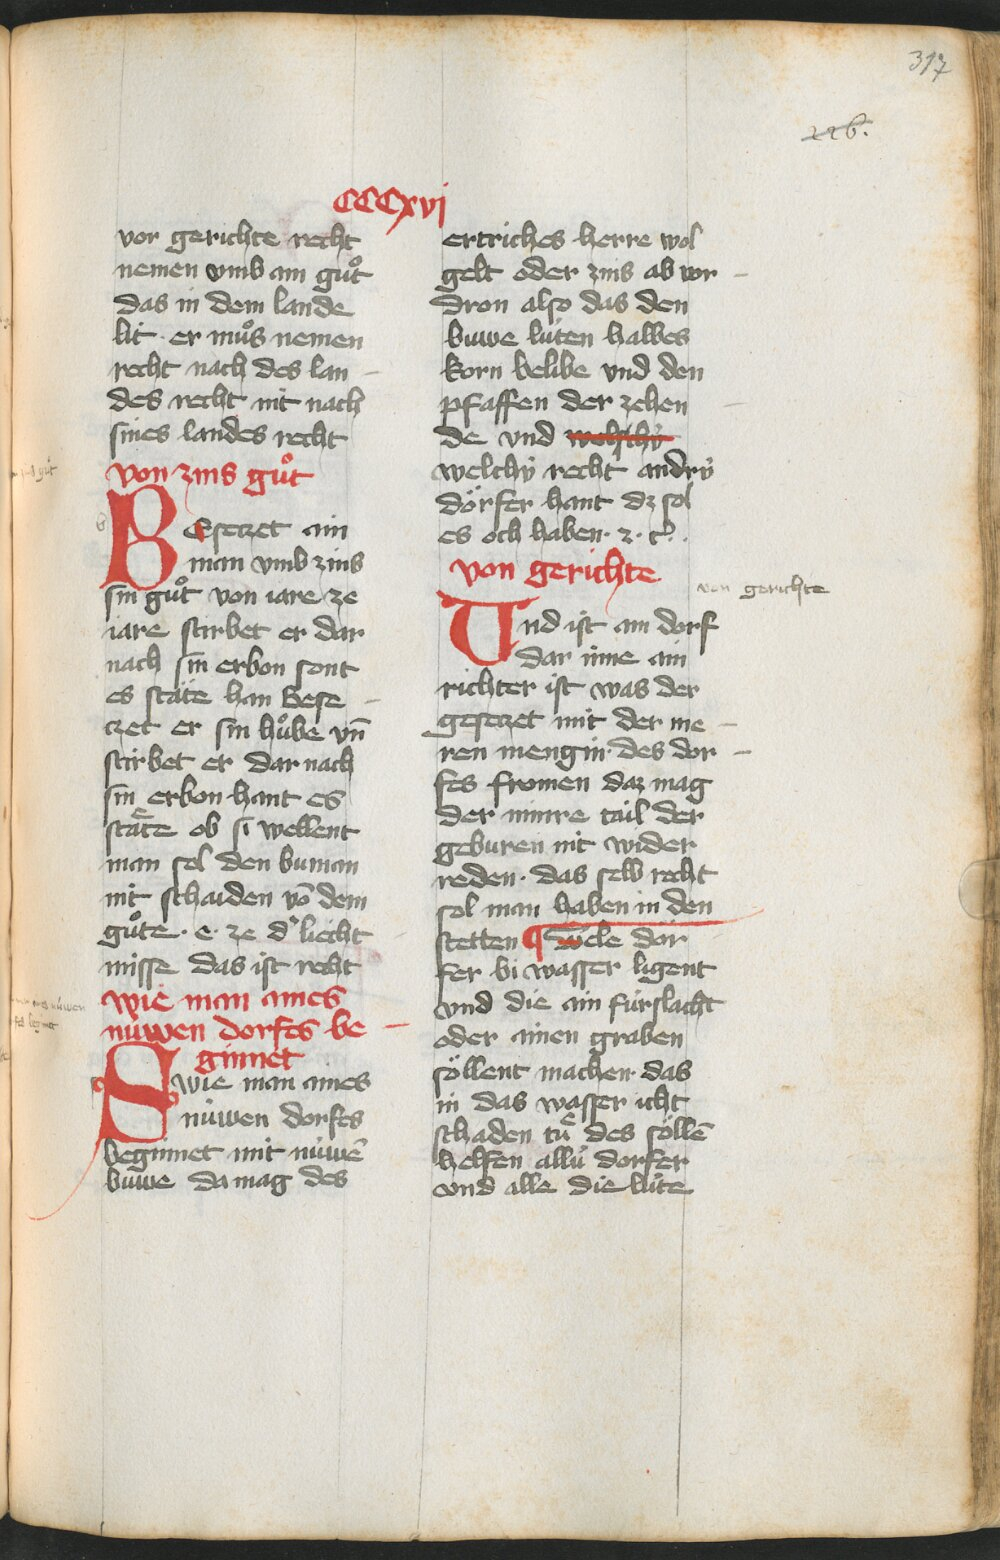 317
226.
CCCxvj
vor gerichte recht
nemen vmb ain guͦt
das in dem lande
lit · er muͦs nemen
recht nach des lan –
des recht nit nach
sines landes recht
von zins guͦt
BEseczet ain
man vmb zins
sin guͦt von iare ze
iare stirbet er dar
nach sin erbon sont
es stäte han Bese –
czet er sin huͦbe vn̄
stirbet er dar nach
sin erbon hant es
staͤte ob si wellent
man sol den buman
nit schaiden vō dem
guͦte · e · ze d' liecht
misse das ist recht
wie man aines
nuwen dorfes be –
ginnet
Swie man aines
nüwen dorfes
beginnet mit nüwē
buwe da mag des
ertriches herre wol
gelt oder zins ab vor –
dron also das den
buwe lüten halbes
korn belibe vnd den
pfaffen der zehen –
de vnd
welchÿ recht andrÿ
dörfer hant dz sol
es och haben · z · c̄ ·
von gerichte
von gerichte
Vnd ist ain dorf
dar inne ain
richter ist was der
geseczet mit der me –
ren mengin des dor –
fes fromen daz mag
der minre tail der
geburen nit wider
reden · das selb recht
sol man haben in den
stetten ¶ wele dör
fer bi wasser ligent
vnd die ain fürslacht
oder ainen graben
söllent machen das
in das wasser icht
schaden tuͤ des söllē
helfen allü dorfer
vnd alle die lüte